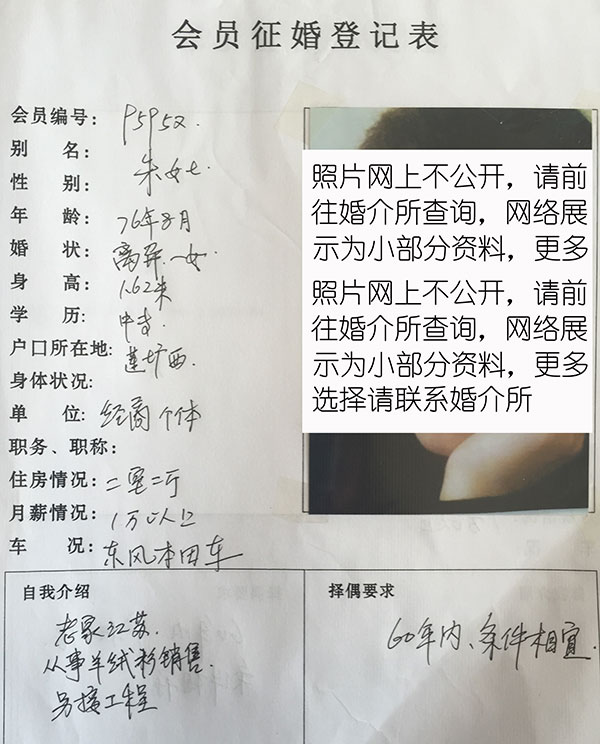 会员征婚登记表
会员编号: P5952.
别 名: 朱女士.
性 别:
年 龄: 76年8月
婚 状: 离异.一女
身 高: 1.62米
学 历: 中专.
户口所在地: 莲圹西.
身体状况:
单 位: 经商个体
职务、职称:
住房情况: 二室二厅
月薪情况: 1万以上
车 况: 东风本田车
照片网上不公开，请前
往婚介所查询，网络展
示为小部分资料，更多
照片网上不公开，请前
往婚介所查询，网络展
示为小部分资料，更多
选择请联系婚介所
自我介绍
老家江苏.
从事羊绒衫销售.
另接工程
择偶要求
60年内、条件相宜.